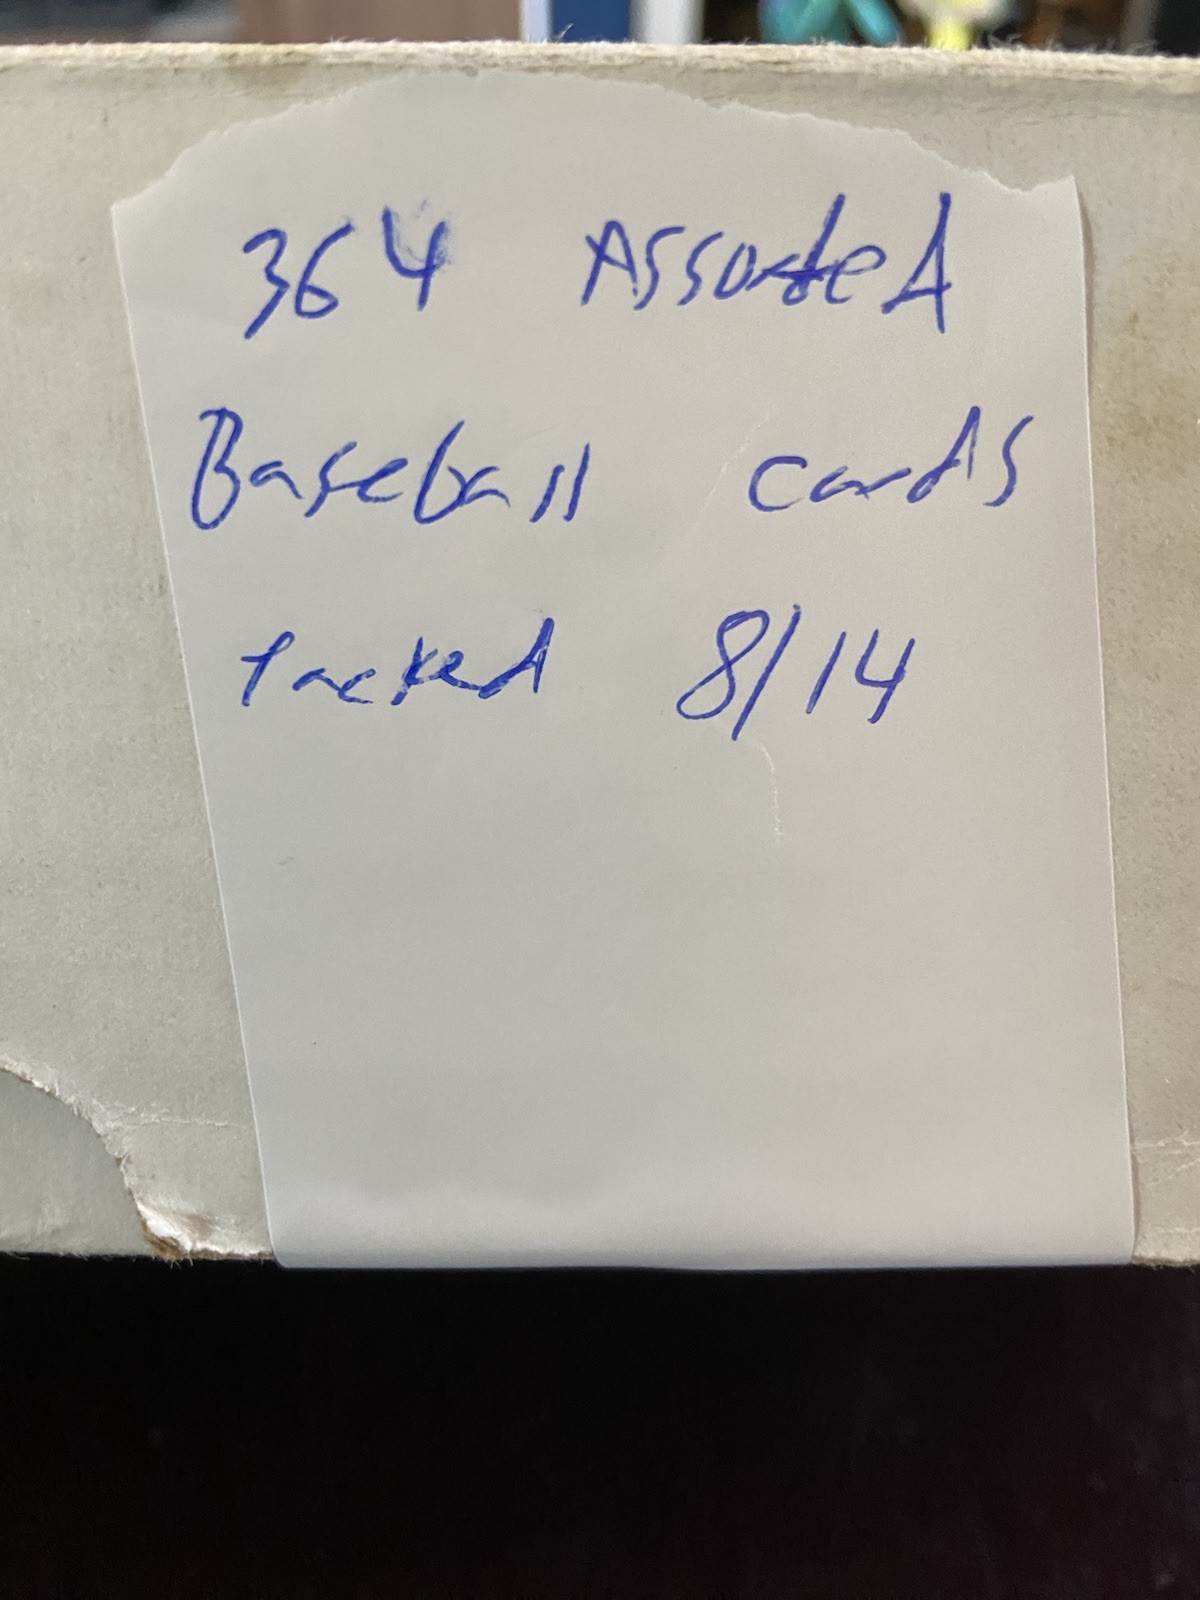 364 Assorted
Baseball cards
Packed 8/14